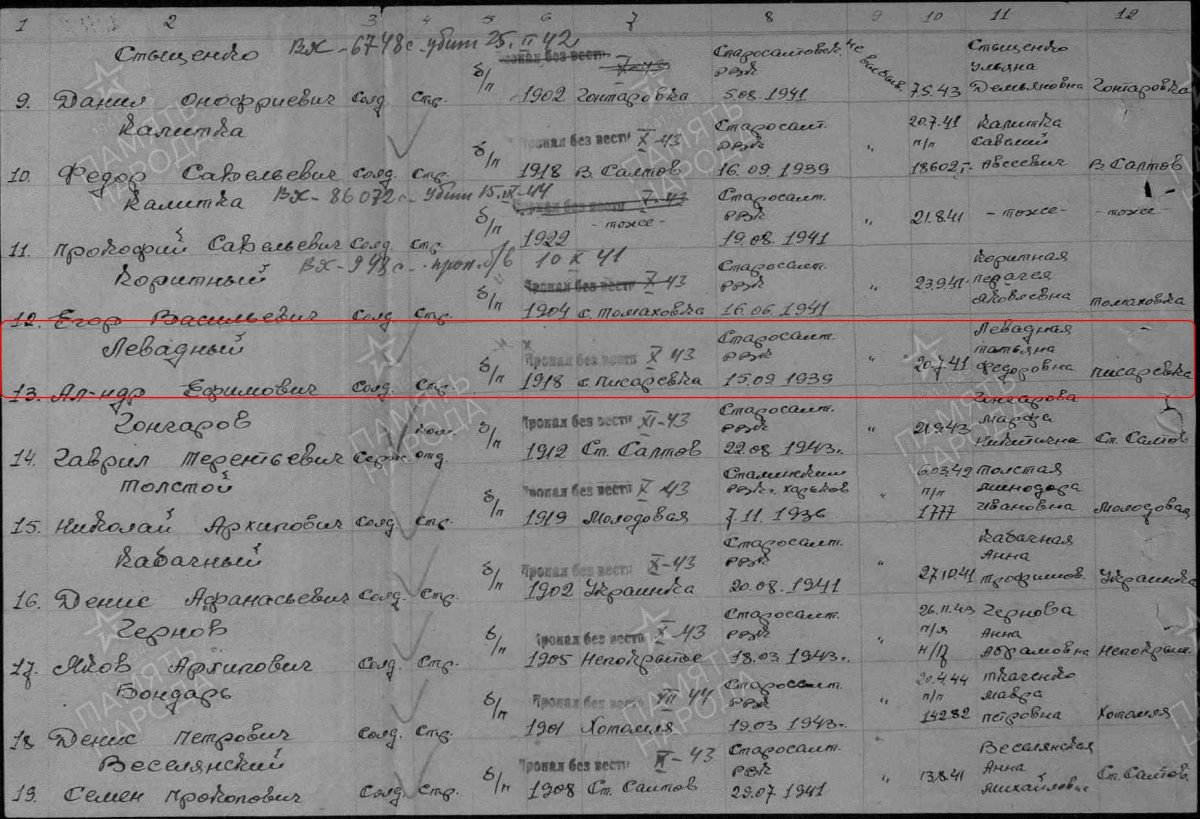 1 2 3 4 5 6 7 8 9 10 11 12
Стыщенко ВХ-6748с. убит 25.II 42 Пропал без вести X-43 Старосалтовск. Стыщенко
б/п РВК Ульяна
9. Данил Онофриевич Солд. Стр. 1902 Гонтаровка 5.08.1941 7.5.43 Демьяновна Гонтаровка
Калитка Пропал без вести X-43 Старосалт. 20.7.41 Калитка
б/п РВК " п/п Савелий
10. Федор Савельевич Солд. Стр. 1918 В. Салтов 16.09.1939 18602г. Авсеевич В. Салтов
Калитка ВХ-86072с. убит 15.III-44 Пропал без вести X-43 Старосалт.
б/п - тоже - РВК " 21.8.41 - тоже - - тоже -
11. Прокофий Савельевич Солд. Стр. 1922 19.08.1941
Коритный ВХ-948с. проп. б/в 10 X 41 Старосалт. Коритная
б/п Пропал без вести X-43 РВК " 23.9.41
12. Егор Васильевич Солд. Стр. 1904 с. Томаховка 16.06.1941 Яковлевна Томаховка
Левадный Пропал без вести X 43 Старосалт. Левадная
б/п РВК " 20.7.41 Татьяна
13. Ал-ндр Ефимович Солд. Стр. 1918 с. Писаревка 15.09 1939 Федоровна Писаревка
Гонгаров Ком. б/п Пропал без вести XI-43 Старосалт. Гонгарова
РВК " 21.9.43 Марфа
14. Гаврил Терентьевич отд 1912 Ст. Салтов 22.08.1943г. Никитична Ст. Салтов
Толстой Пропал без вести X 43 Сталинский 6.03.42 Толстая
б/п РВК г. Харьков " п/п Минодора
15. Николай Архипович Солд. Стр. 1919 Молодовая 7.11.1936 1777 Ивановна Молодовая
Кабачный Старосалт. Кабачная
б/п Пропал без вести X-43 РВК " Анна
16. Денис Афанасьевич Солд. Стр. 1902 Украинка 20.08.1941 27.10.41 Трофимов. Украинка
Чернов Пропал без вести X-43 Старосалт. 26.11.43 Чернова
б/п РВК " п/я Анна
17. Яков Архипович Солд. Стр. 1905 Непокрытое 18.03.1943г. Абрамовна Непокрыт.
Бондарь Старосалт. 20.4.44 Ткаченко
б/п Пропал без вести VII 44 РВК " п/п Мавра
18 Денис Петрович Солд. Стр. 1901 Хотомля 19.03.1943г. 14282 Петровна Хотомля
Веселянский Пропал без вести X-43 Старосалт. Веселянская
б/п РВК " 13.8.41 Анна Ст. Салтов.
19. Семен Прокопович Солд. Стр. 1908 Ст. Салтов 29.07 1941
ПАМЯТЬ НАРОДА